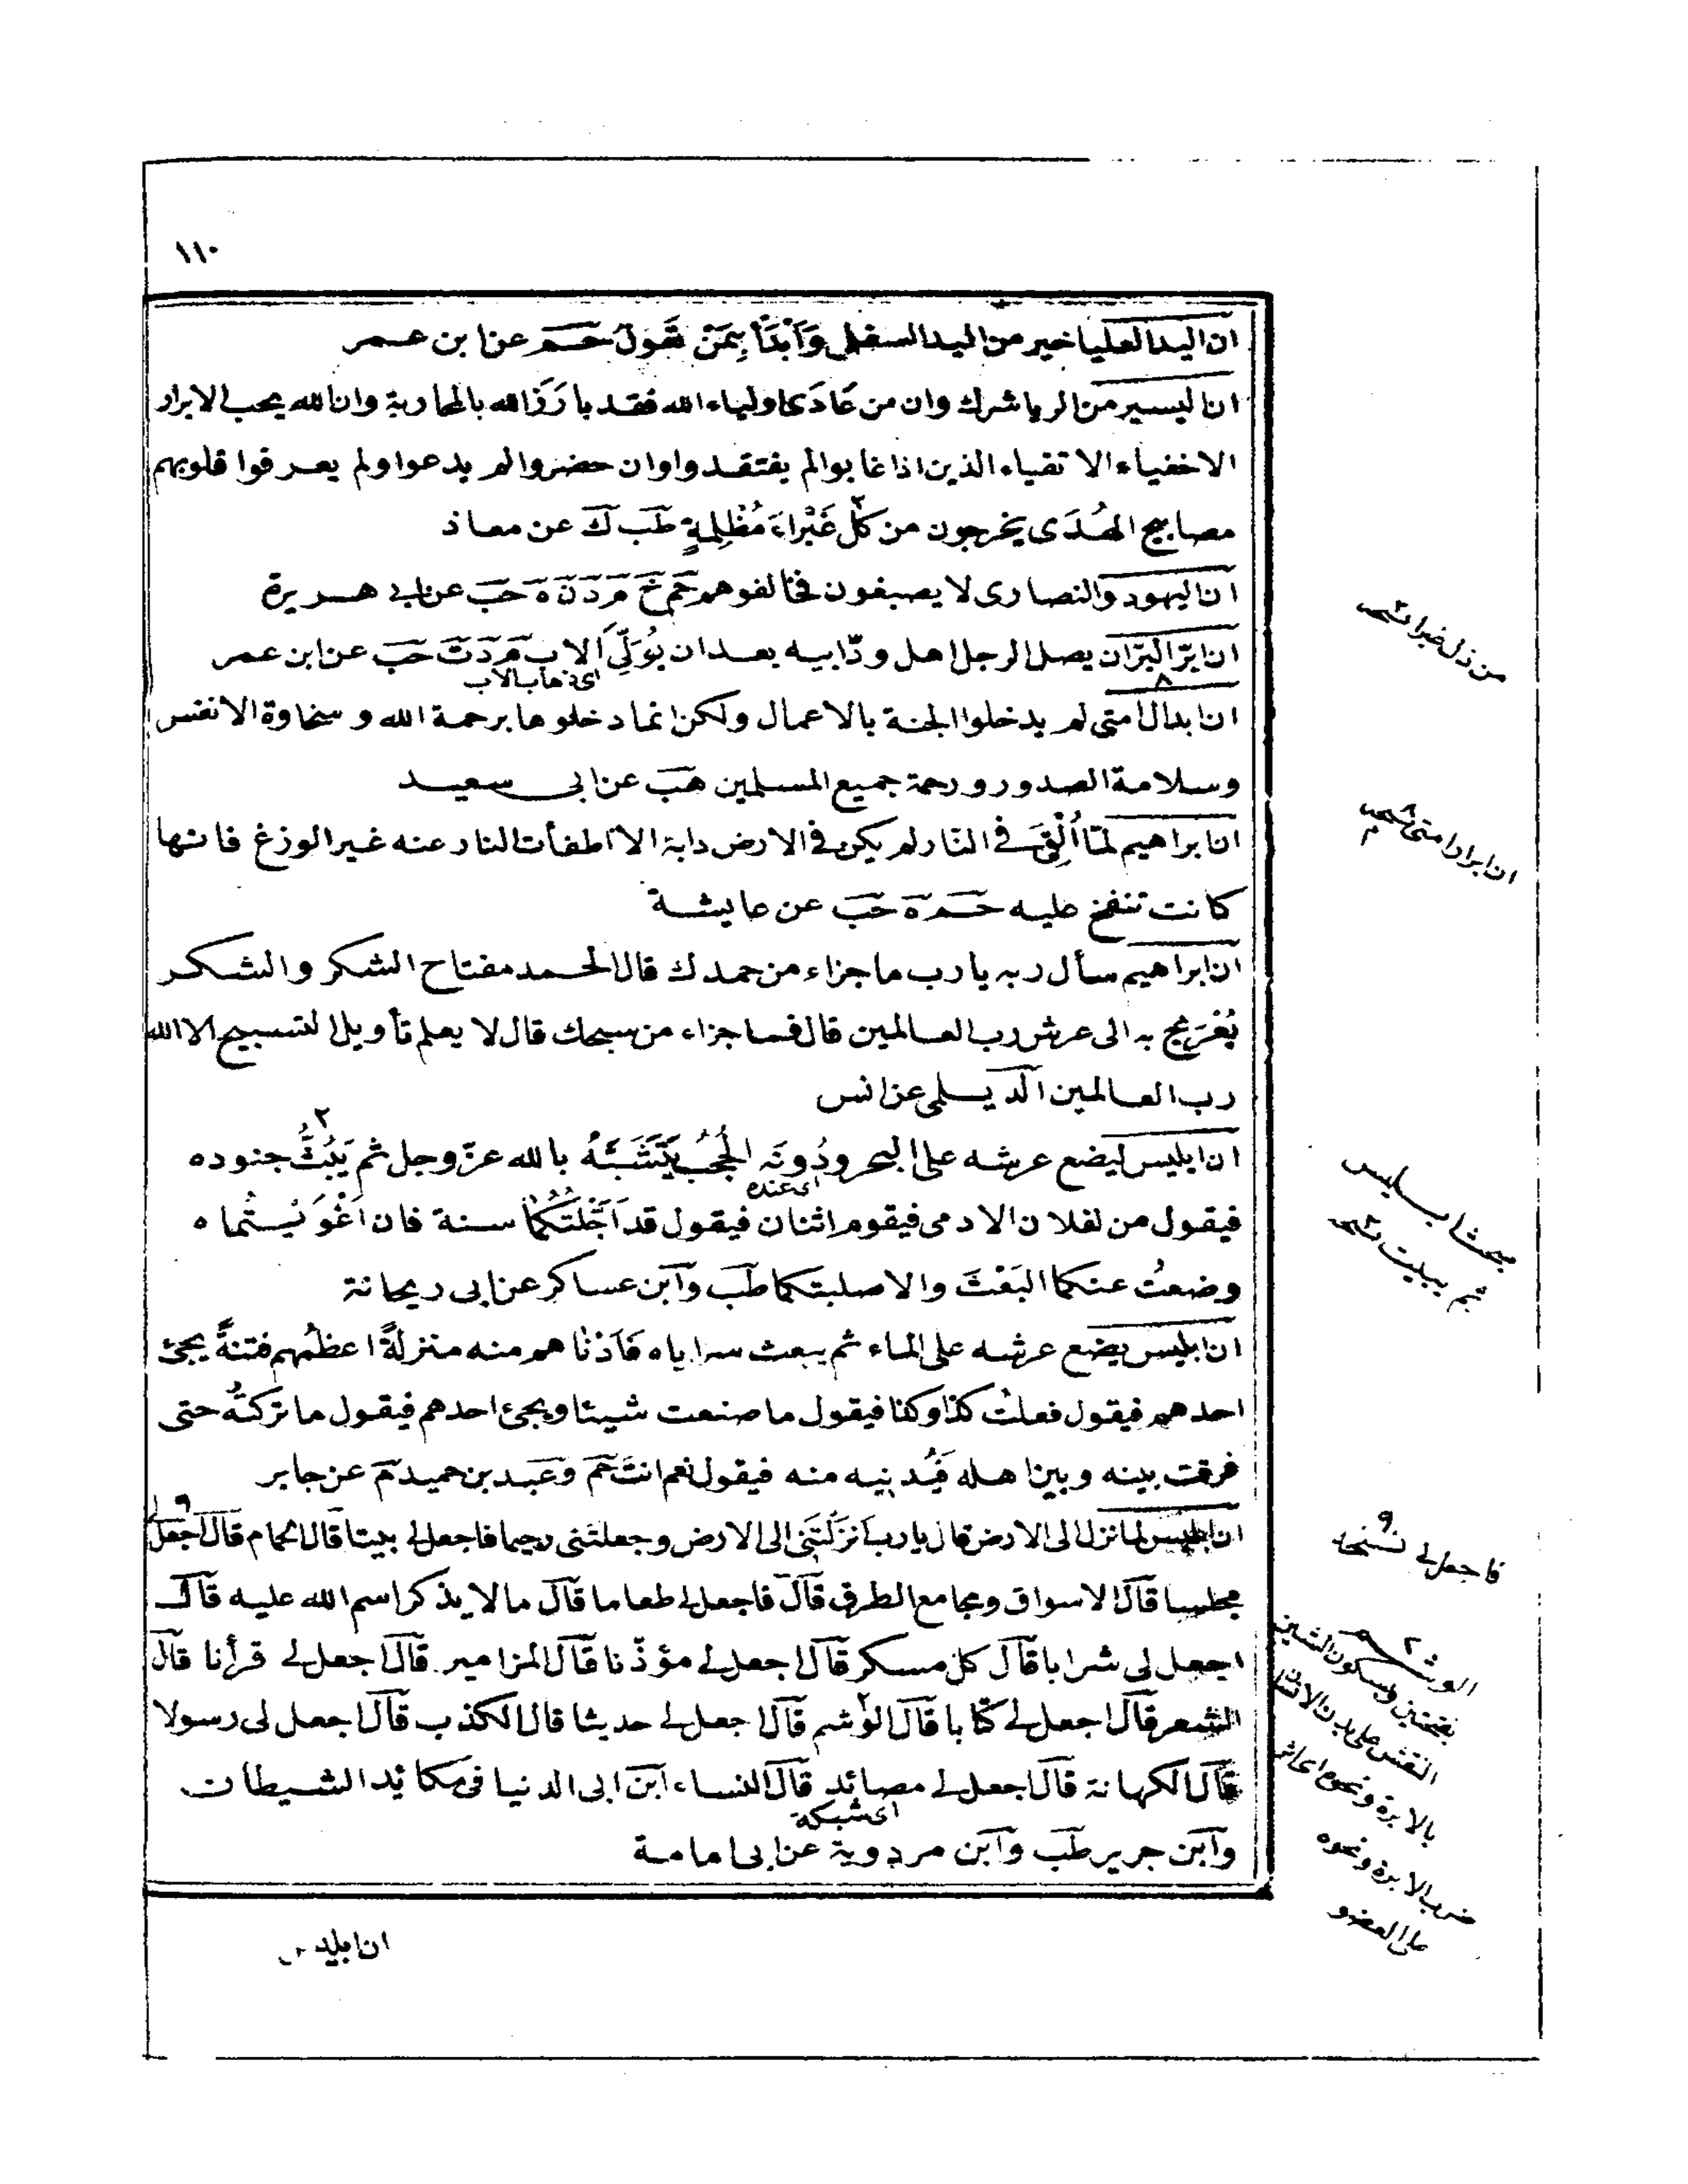 ١١٠
ان اليد العليا خير من اليد السفلى وَاَبْدَأْ بِمَنْ تَعُولُ حَم عن ابن عمر
ان اليسير من الريا شرك وان من عَادَى اولياء الله فقد بارَزَ الله بالمحاربة وان الله يحب الابرار
الاخفياء الاتقياء الذين اذا غابوا لم يفتقدوا وان حضروا لم يدعوا ولم يعرفوا قلوبهم
مصابيح الهُدَى يخرجون من كل غَبْرَاءَ مُظْلِمةٍ طَب كَ عن معاذ
ان اليهود والنصارى لا يصبغون فخالفوهم حَم خَ مَ دَ نَ هَ حَبَ عن ابي هريرة
ان ابرّ البرّ ان يصل الرجل اهل ودّ ابيه بعد ان يُوَلِّيَ الاب مَ دَ تَ حَبَ عن ابن عمر
اى ذهاب الاب
ان ابدال امتى لم يدخلوا الجنة بالاعمال ولكن انما دخلوها برحمة الله و سخاوة الانفس
وسلامة الصدور ورحمة جميع المسلمين هَبَ عن ابى سعيد
ان ابراهيم لمّا اُلْقِىَ فى النّار لم يكن فى الارض دابة الا اطفأت النار عنه غير الوزغ فانها
كانت تنفخ عليه حَم هَ حَبَ عن عايشة
ان ابراهيم سأل ربه يا رب ما جزاء من حمدك قال الحمد مفتاح الشكر والشكر
يُعْرَجُ به الى عرش رب العالمين قال فما جزاء من سبحك قال لا يعلم تأويل التسبيح الا الله
رب العالمين الدَيلمى عن انس
ان ابليس ليضع عرشه على البحر ودُونَه الحُجُب يَتَشَبَّهُ بالله عزّ وجل ثم يَبُثُّ جنوده
اى عنده
فيقول من لفلان الادمى فيقوم اثنان فيقول قد اَجَّلْتُكُمَا سنة فان اَغْوَيْتُماه
وضعتُ عنكما البَعْثَ والا صلبتكما طَب وآبن عساكر عن ابى ريحانة
ان ابليس يضع عرشه على الماء ثم يبعث سراياه فَاَدْنا هم منه منزلةً اعظمُهم فتنةً يجئ
احدهم فيقول فعلتُ كذا وكذا فيقول ما صنعت شيئا ويجئ احدهم فيقول ما تركتُه حتى
فرقت بينه وبين اهله فَيُدنيه منه فيقول نعم انتَ حَم وعَبد بن حميد مَ عن جابر
ان ابليس لما نزل الى الارض قال يا رب اَنزَلْتَنى الى الارض وجعلتَنى رجيما فاجعل لى بيتا قال الحمام قال اجعل لى
مجلسا قال الاسواق ومجامع الطرق قال فاجعل لى طعاما قال ما لا يذكر اسم الله عليه قال
اجعل لى شرابا قال كل مسكر قال اجعل لى مؤذّنا قال المزامير قال اجعل لى قرأنا قال
الشعر قال اجعل لى كتابا قال الوَشم قال اجعل لى حديثا قال الكذب قال اجعل لى رسولا
قال الكهانة قال اجعل لى مصائد قال النساء ابن ابى الدنيا فى مكائد الشيطان
اى شبكة
وآبن جرير طَب وآبن مردوية عن ابى امامة
ان ابليس
ان ابرار امتى نسخه م
ثم يبيت نسخه
فاجعل لى نسخه
بفتحتين وسكون الشين
النقش على بدن الانسان
بالابرة ونحوه اى اثر
ضرب الابرة ونحوه
على العضو